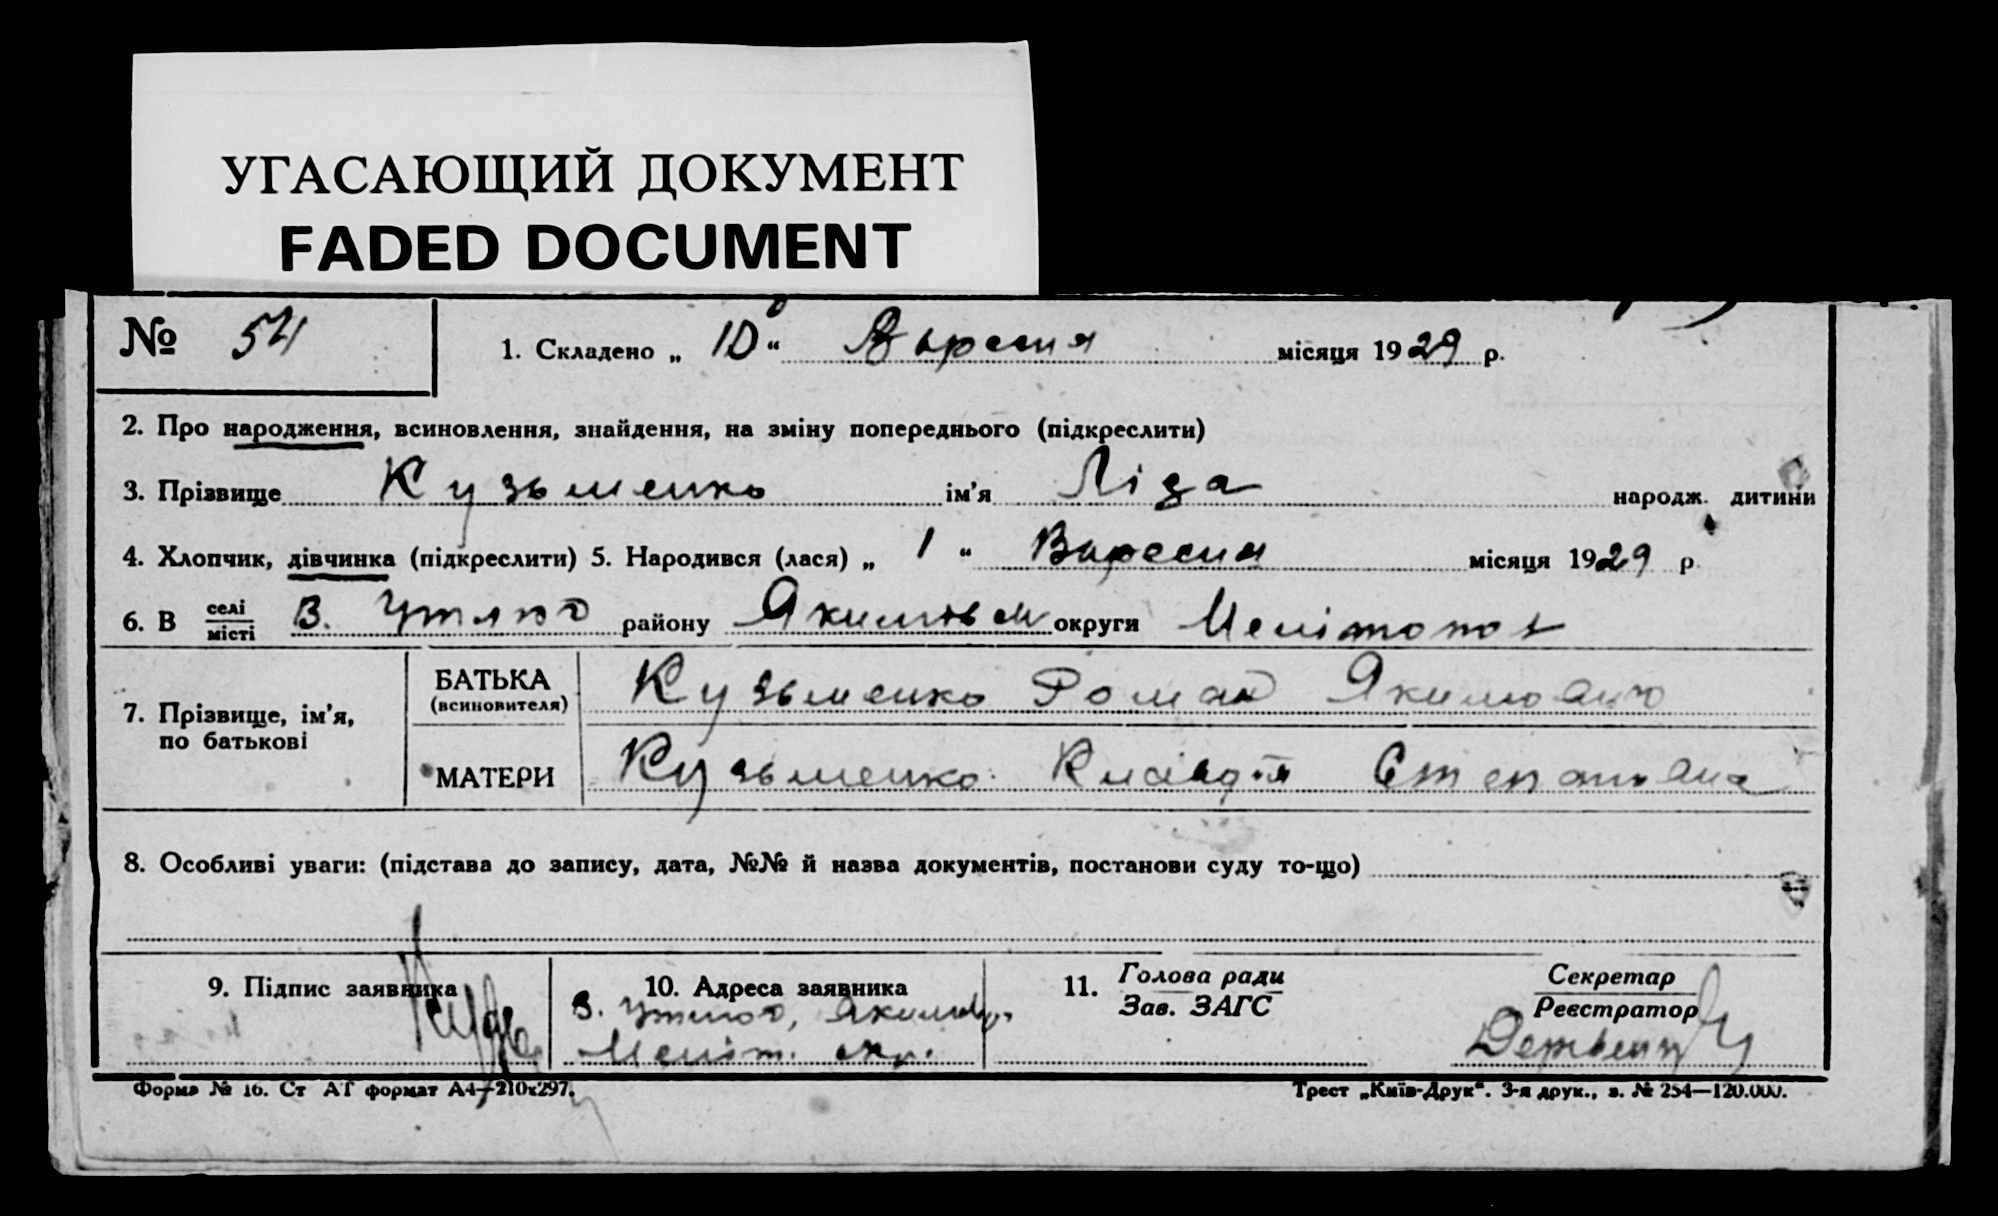 УГАСАЮЩИЙ ДОКУМЕНТ
FADED DOCUMENT
№ 54
1. Складено „ 10 “ Вересня місяця 1929 р.
2. Про народження, всиновлення, знайдення, на зміну попереднього (підкреслити)
3. Прізвище Кузьменко ім’я Ліза народж. дитини
4. Хлопчик, дівчинка (підкреслити) 5. Народився (лася) „ 1 “ Вересня місяця 1929 р.
6. В селі/місті В. Утлюг району Якимов округи Мелітопол
7. Прізвище, ім’я, по батькові
БАТЬКА (всиновителя) Кузьменко Роман Якимович
МАТЕРИ Кузьменко Клавдія Степановна
8. Особливі уваги: (підстава до запису, дата, №№ й назва документів, постанови суду то-що)
9. Підпис заявника
10. Адреса заявника
В. Утлюг, Якимов.
Меліт. окр.
11. Голова ради
Зав. ЗАГС
Секретар
Реєстратор
Форма № 16. Ст АТ формат А4—210х297.
Трест „Київ-Друк“. 3-я друк., з. № 254—120.000.